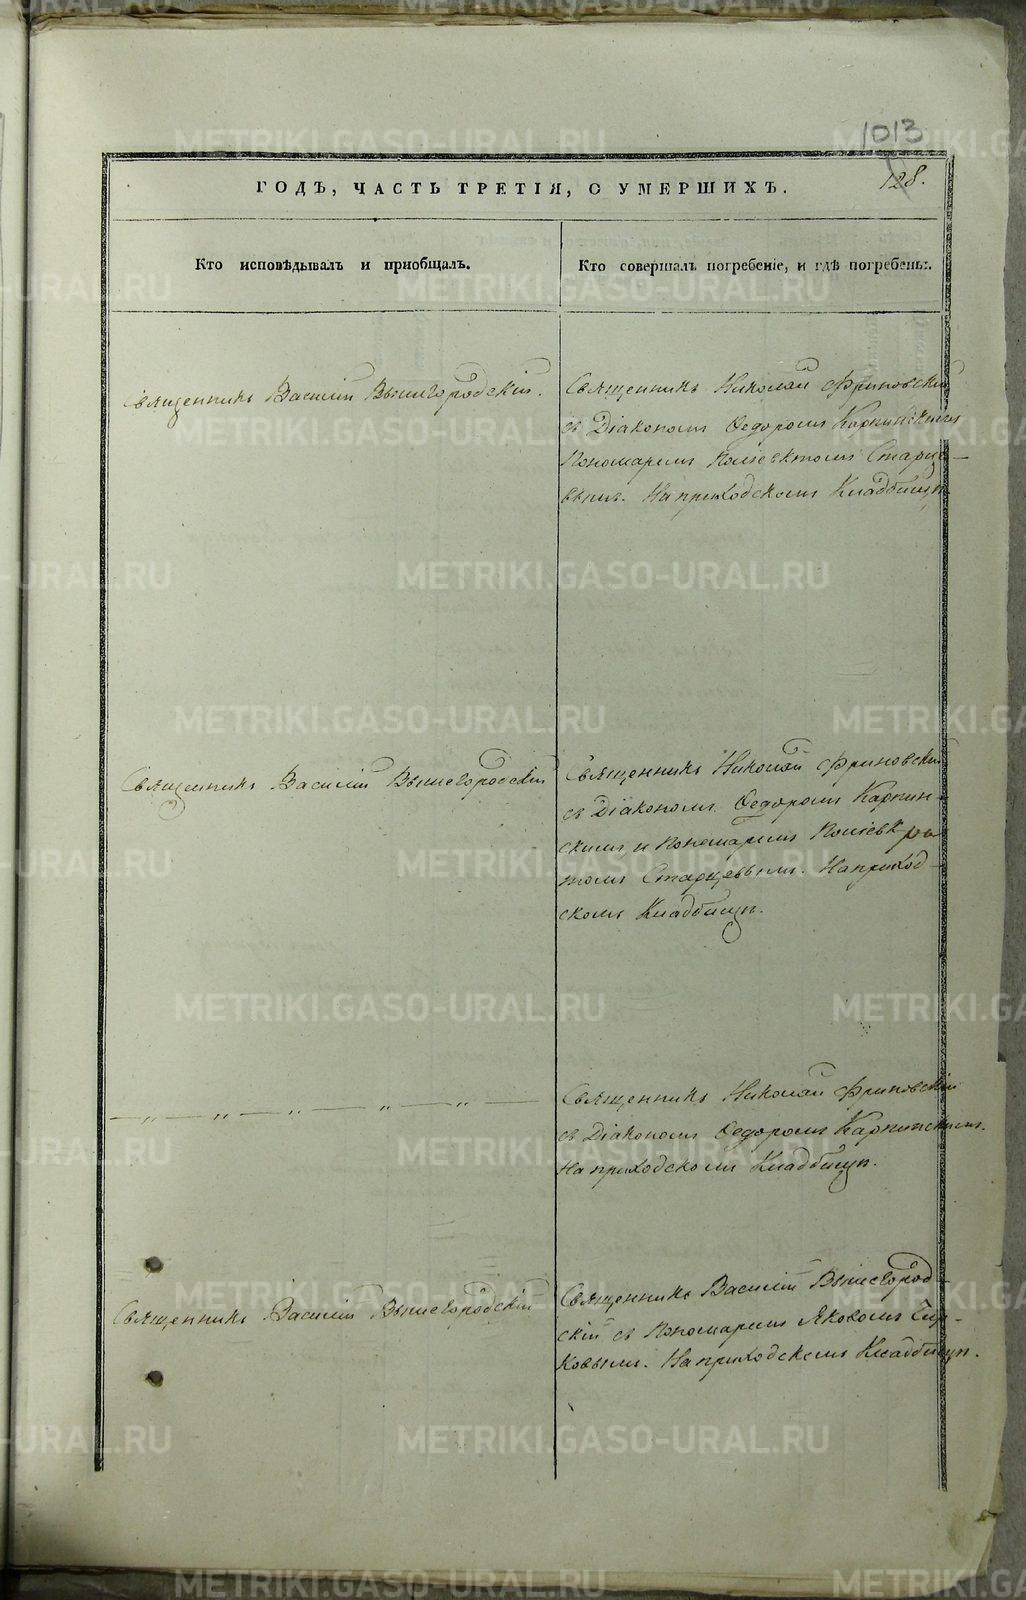 1013
128.
ГОДЪ, ЧАСТЬ ТРЕТІЯ, О УМЕРШИХЪ.
Кто исповѣдывалъ и пріобщалъ.
Кто совершалъ погребеніе, и гдѣ погребены.
Священникъ Василій Вышегородскій.
Священникъ Николай Фриновскій
съ Діакономъ Ѳедоромъ Карпинскимъ
Пономаремъ Поліевктомъ Старце-
вымъ. На приходскомъ Кладбищѣ.
Священникъ Василій Вышегородскій
Священникъ Николай Фриновскій
съ Діакономъ Ѳедоромъ Карпин-
скимъ и Пономаремъ Поліевк
томъ Старцевымъ. На приход-
скомъ Кладбищѣ.
— „ — „ — „ — „ — „ —
Священникъ Николай Фриновскій
съ Діакономъ Ѳедоромъ Карпинскимъ.
На приходскомъ Кладбищѣ.
Священникъ Василій Вышегородскій
Священникъ Василій Вышегород-
скій съ Пономаремъ Яковомъ
ковымъ. На приходскомъ Кладбищѣ.
METRIKI.GASO-URAL.RU